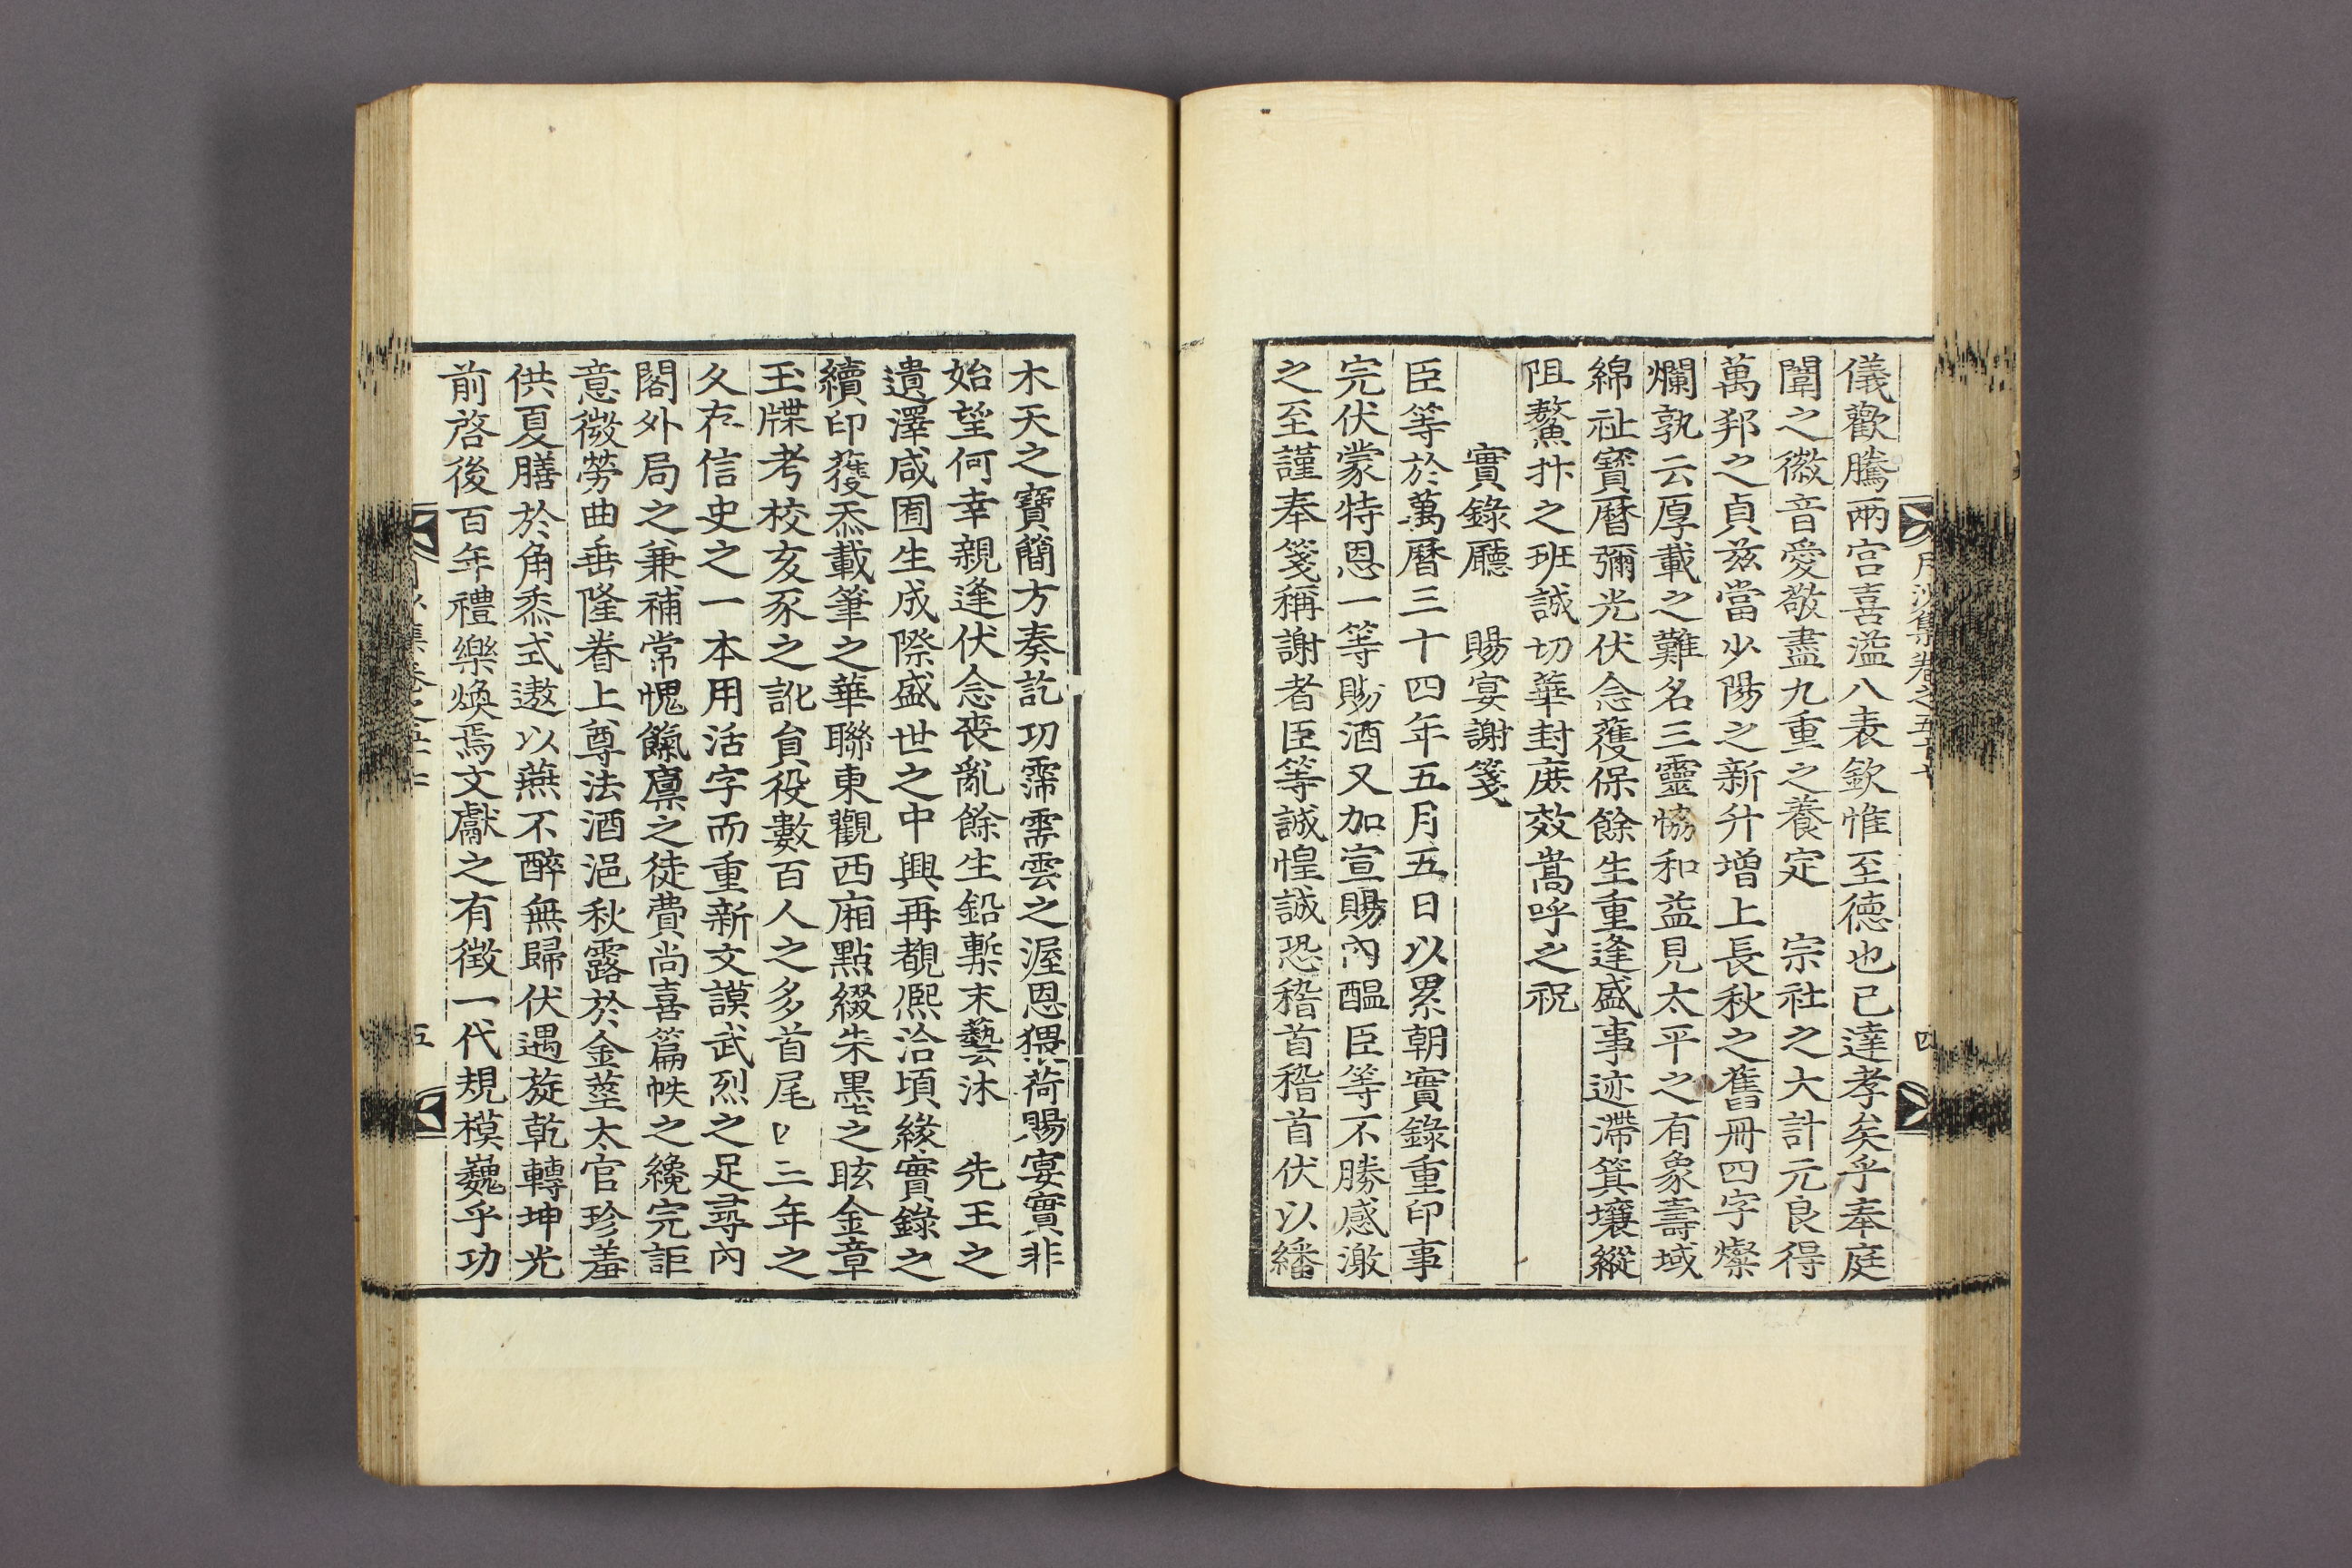 儀歡騰兩宮喜溢八表欽惟至德也已達孝矣乎奉庭
闈之徽音愛敬盡九重之養定　宗社之大計元良得
萬邦之貞玆當少陽之新升增上長秋之舊冊四字燦
爛孰云厚載之難名三靈恊和益見太平之有象壽域
綿祉寶曆彌光伏念獲保餘生重逢盛事迹滯箕壤縱
阻鰲抃之班誠切華封庶效嵩呼之祝
實錄廳　賜宴謝箋
臣等於萬曆三十四年五月五日以累朝實錄重印事
完伏蒙特恩一等賜酒又加宣賜內醞臣等不勝感激
之至謹奉箋稱謝者臣等誠惶誠恐稽首稽首伏以繙
木天之寶簡方奏訖功霈需雲之渥恩猥荷賜宴實非
始望何幸親逢伏念喪亂餘生鉛槧末藝沐　先王之
遺澤咸囿生成際盛世之中興再覩熙洽頃緣實錄之
續印獲忝載筆之華聯東觀西廂點綴朱墨之眩金章
玉牒考校亥豕之訛員役數百人之多首尾二年之
久存信史之一本用活字而重新文謨武烈之足尋內
閣外局之兼補常愧餼廩之徒費尙喜篇帙之纔完詎
意微勞曲垂隆眷上尊法酒浥秋露於金莖太官珍羞
供夏膳於角黍式遨以燕不醉無歸伏遇旋乾轉坤光
前啓後百年禮樂煥焉文獻之有徵一代規模巍乎功
月沙集卷之五十
四
五